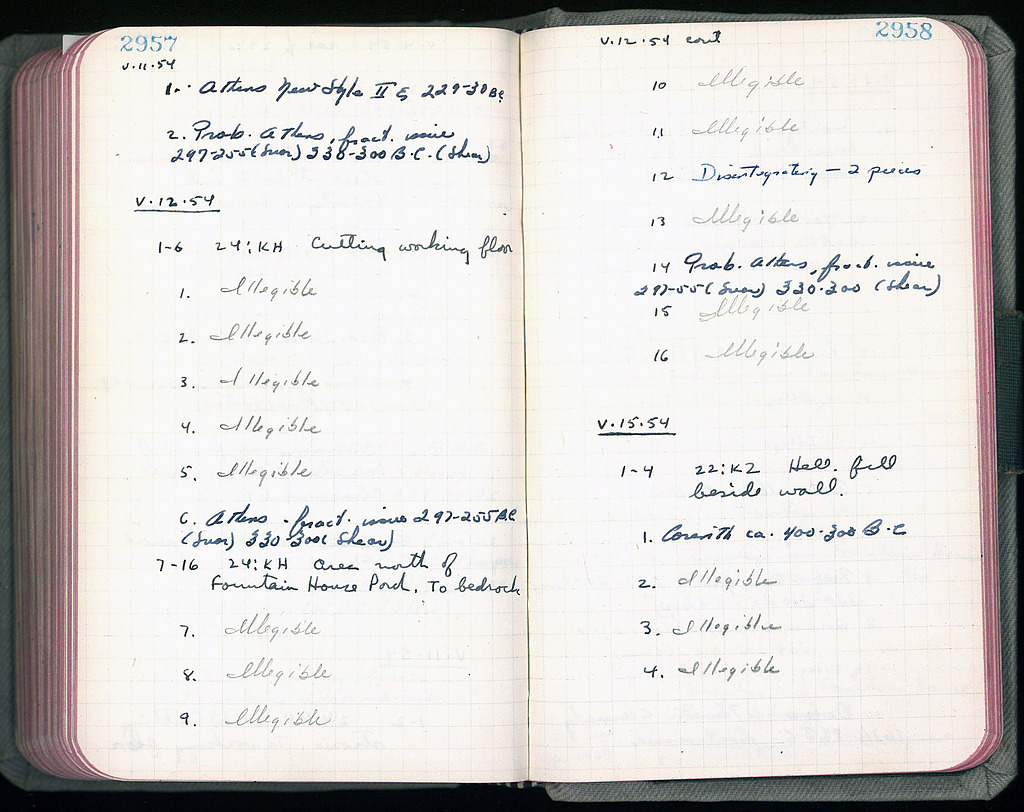 2957
V.11.54
1. Athens New Style II 229-30 BC
2. Prob. Athens, fract. issue
297-255 (Svor) 330-300 B.C. (Shear)
V.12.54
1-6 24:KH Cutting working floor
1. Illegible
2. Illegible
3. Illegible
4. Illegible
5. Illegible
6. Athens. fract. issue 297-255 B.C
(Svor) 330-300 (Shear)
7-16 24:KH area north of
Fountain House Porch. To bedrock
7. Illegible
8. Illegible
9. Illegible
2958
V.12.54 cont
10 Illegible
11 Illegible
12 Disintegrating - 2 pieces
13 Illegible
14 Prob. Athens, fract. issue
297-55 (Svor) 330-300 (Shear)
15 Illegible
16 Illegible
V.15.54
1-4 22:KZ Hell. fill
beside wall.
1. Corinth ca. 400-300 B.C
2. Illegible
3. Illegible
4. Illegible